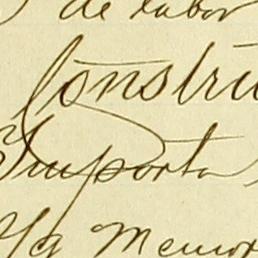 de labor
Constru
Importa
Memor